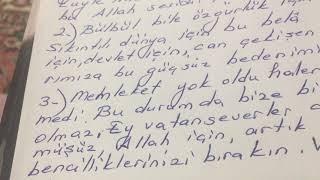 ba Allah seribi
2-) Bülbül bile özgürlük için
Sıkıntılı dünya için bu belâ
için, devlet için, can çekişen
rımıza bu güçsüz bedenimi
3-) Memleket yok oldu haber
medi. Bu durumda bize bi
olmaz, Ey vatanseverler
müşüz Allah için, artık
bencilliklerinizi bırakın. V